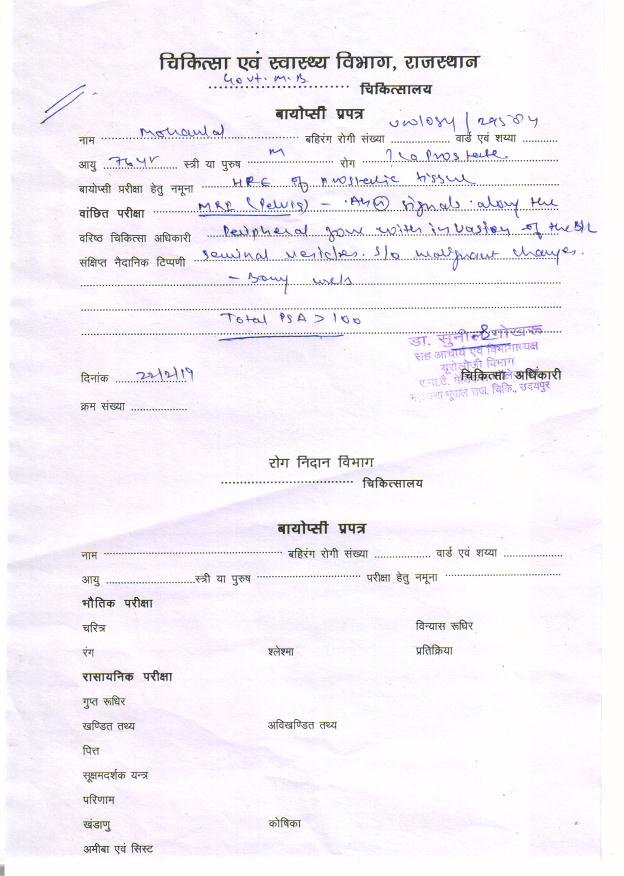 चिकित्सा एवं स्वास्थ्य विभाग, राजस्थान
Govt. M.B. चिकित्सालय
बायोप्सी प्रपत्र
नाम Mohanlal बहिरंग रोगी संख्या urology / वार्ड एवं शय्या
आयु 76 yr स्त्री या पुरुष M रोग ? Ca Prostate.
बायोप्सी परीक्षा हेतु नमूना HPE of prostatic tissue
वांछित परीक्षा MRI (Pelvis) - signals along the
वरिष्ठ चिकित्सा अधिकारी Peripheral zone with invasion of the B/L
संक्षिप्त नैदानिक टिप्पणी seminal vesicles. s/o malignant changes.
- Bony mets
Total PSA > 100
डा. सुनील गोखरू
सह आचार्य एवं विभागाध्यक्ष
यूरोलॉजी विभाग
दिनांक 22/2/19 चिकित्सा अधिकारी
भूपाल राज. चिकि., उदयपुर
क्रम संख्या
रोग निदान विभाग
चिकित्सालय
बायोप्सी प्रपत्र
नाम बहिरंग रोगी संख्या वार्ड एवं शय्या
आयु स्त्री या पुरुष परीक्षा हेतु नमूना
भौतिक परीक्षा
चरित्र विन्यास रूधिर
रंग श्लेश्मा प्रतिक्रिया
रासायनिक परीक्षा
गुप्त रूधिर
खण्डित तथ्य अविखण्डित तथ्य
पित्त
सूक्षमदर्शक यन्त्र
परिणाम
खंडाणु कोषिका
अमीबा एवं सिस्ट